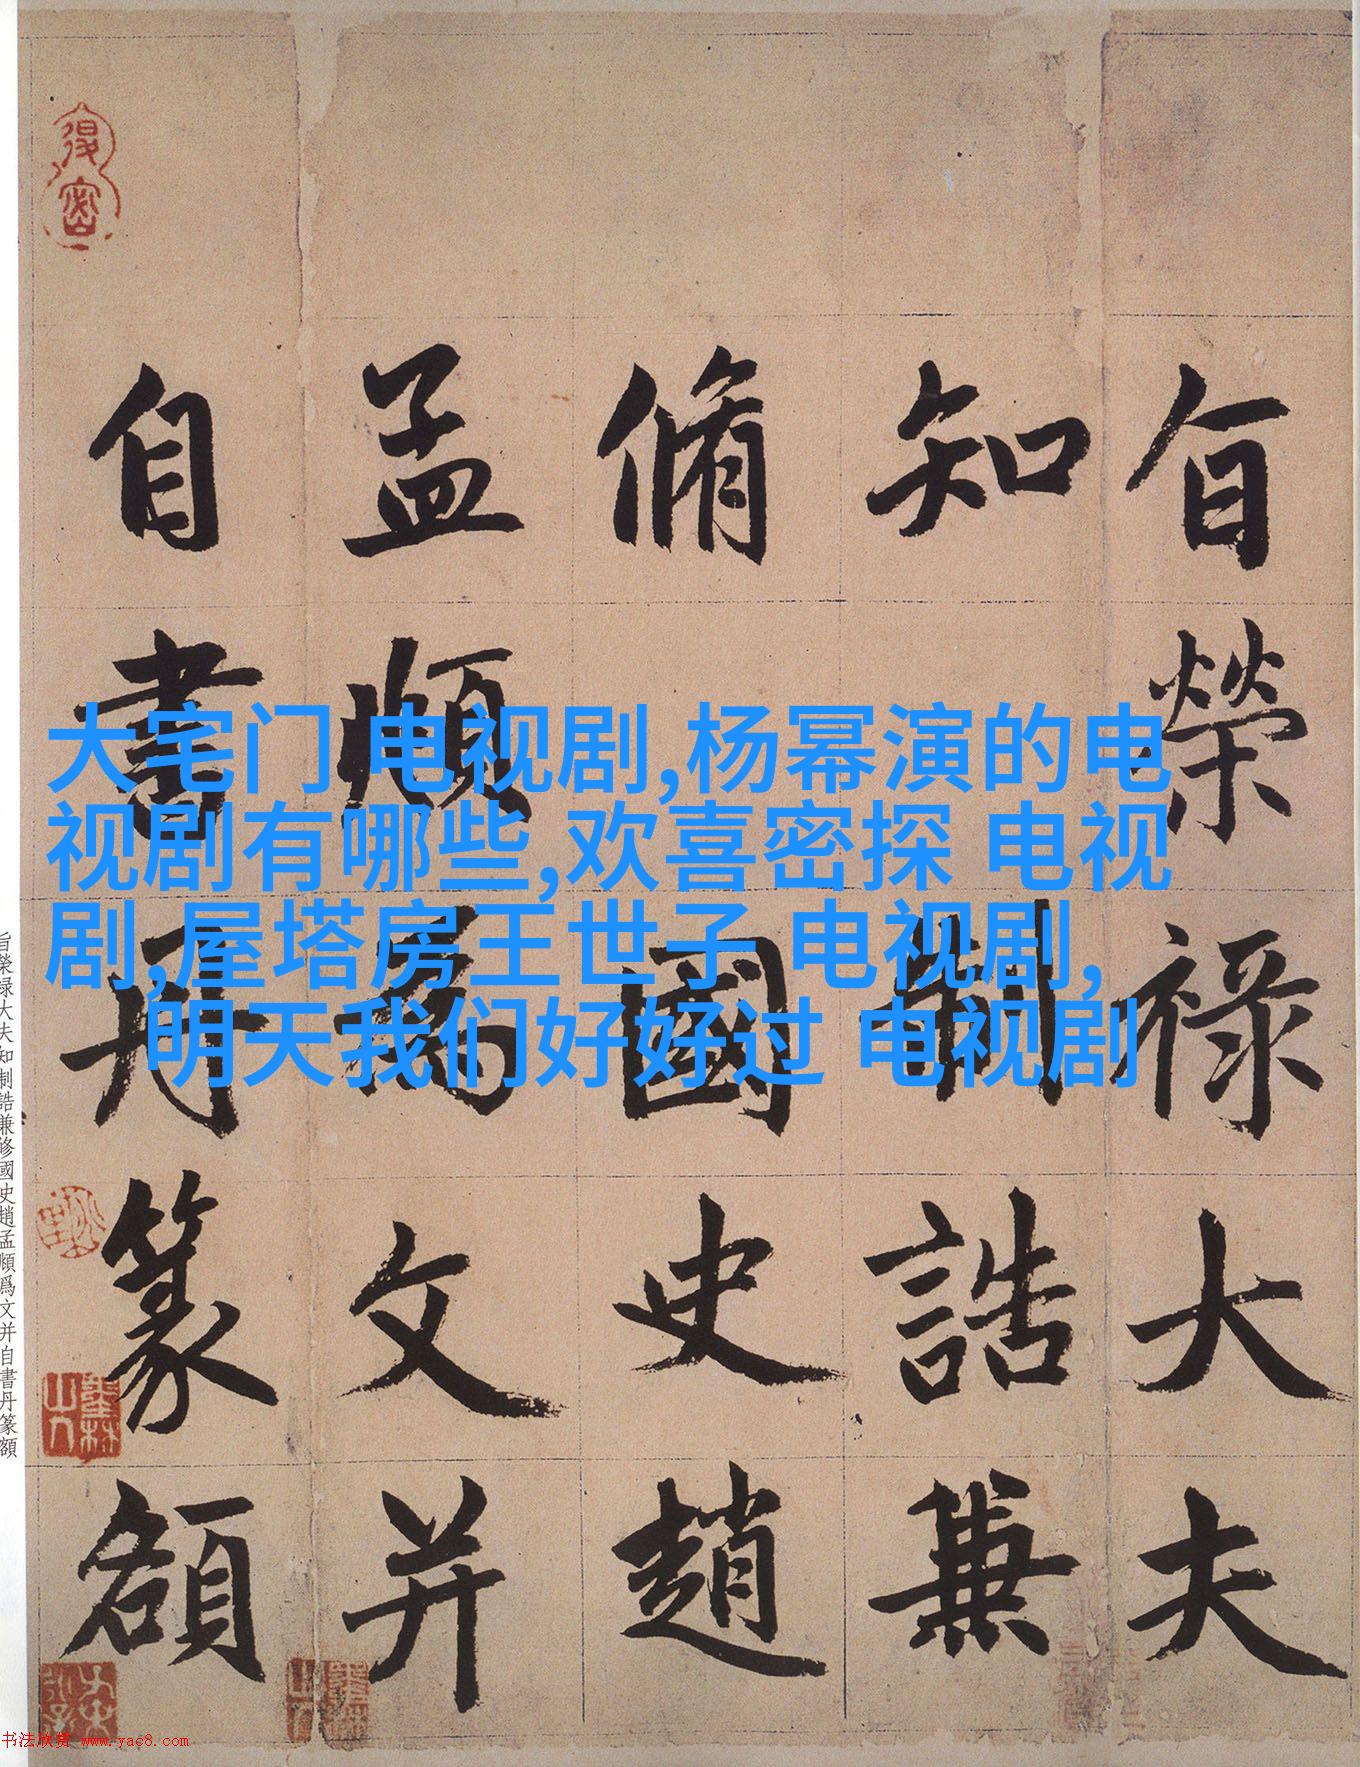 旨榮禄大夫
知制誥兼
脩國史趙
孟頫爲文并
自書丹篆額
大宅门 电视剧,杨幂演的电
视剧有哪些,欢喜密探 电视
剧,屋塔房王世子 电视剧,
明天我们好好过 电视剧
旨榮禄大夫知制誥兼修國史趙孟頫爲文并自書丹篆額
书法欣赏 www.yac8.com